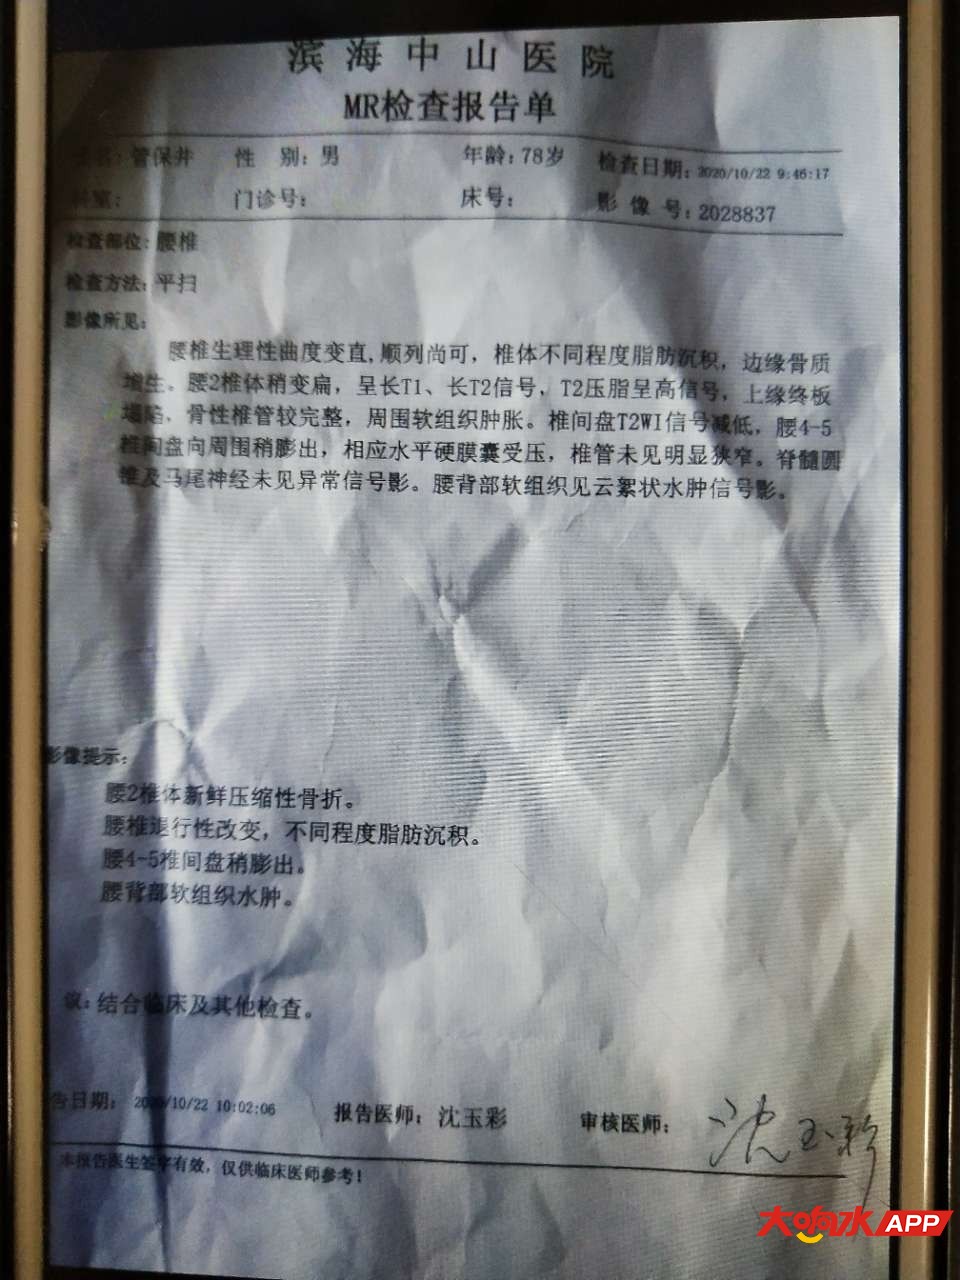 滨海中山医院
MR检查报告单
管保井 性 别：男 年龄：78岁 检查日期：2020/10/22 9:46:17
科室： 门诊号： 床号： 影 像 号：2028837
检查部位：腰椎
检查方法：平扫
影像所见：
腰椎生理性曲度变直，顺列尚可，椎体不同程度脂肪沉积，边缘骨质
增生。腰2椎体稍变扁，呈长T1、长T2信号，T2压脂呈高信号，上缘终板
塌陷，骨性椎管较完整，周围软组织肿胀。椎间盘T2WI信号减低，腰4-5
椎间盘向周围稍膨出，相应水平硬膜囊受压，椎管未见明显狭窄。脊髓圆
锥及马尾神经未见异常信号影。腰背部软组织见云絮状水肿信号影。
影像提示：
腰2椎体新鲜压缩性骨折。
腰椎退行性改变，不同程度脂肪沉积。
腰4-5椎间盘稍膨出。
腰背部软组织水肿。
议：结合临床及其他检查。
告日期： 2020/10/22 10:02:06 报告医师：沈玉彩 审核医师： 沈玉彩
本报告医生签字有效，仅供临床医师参考！
大响水APP